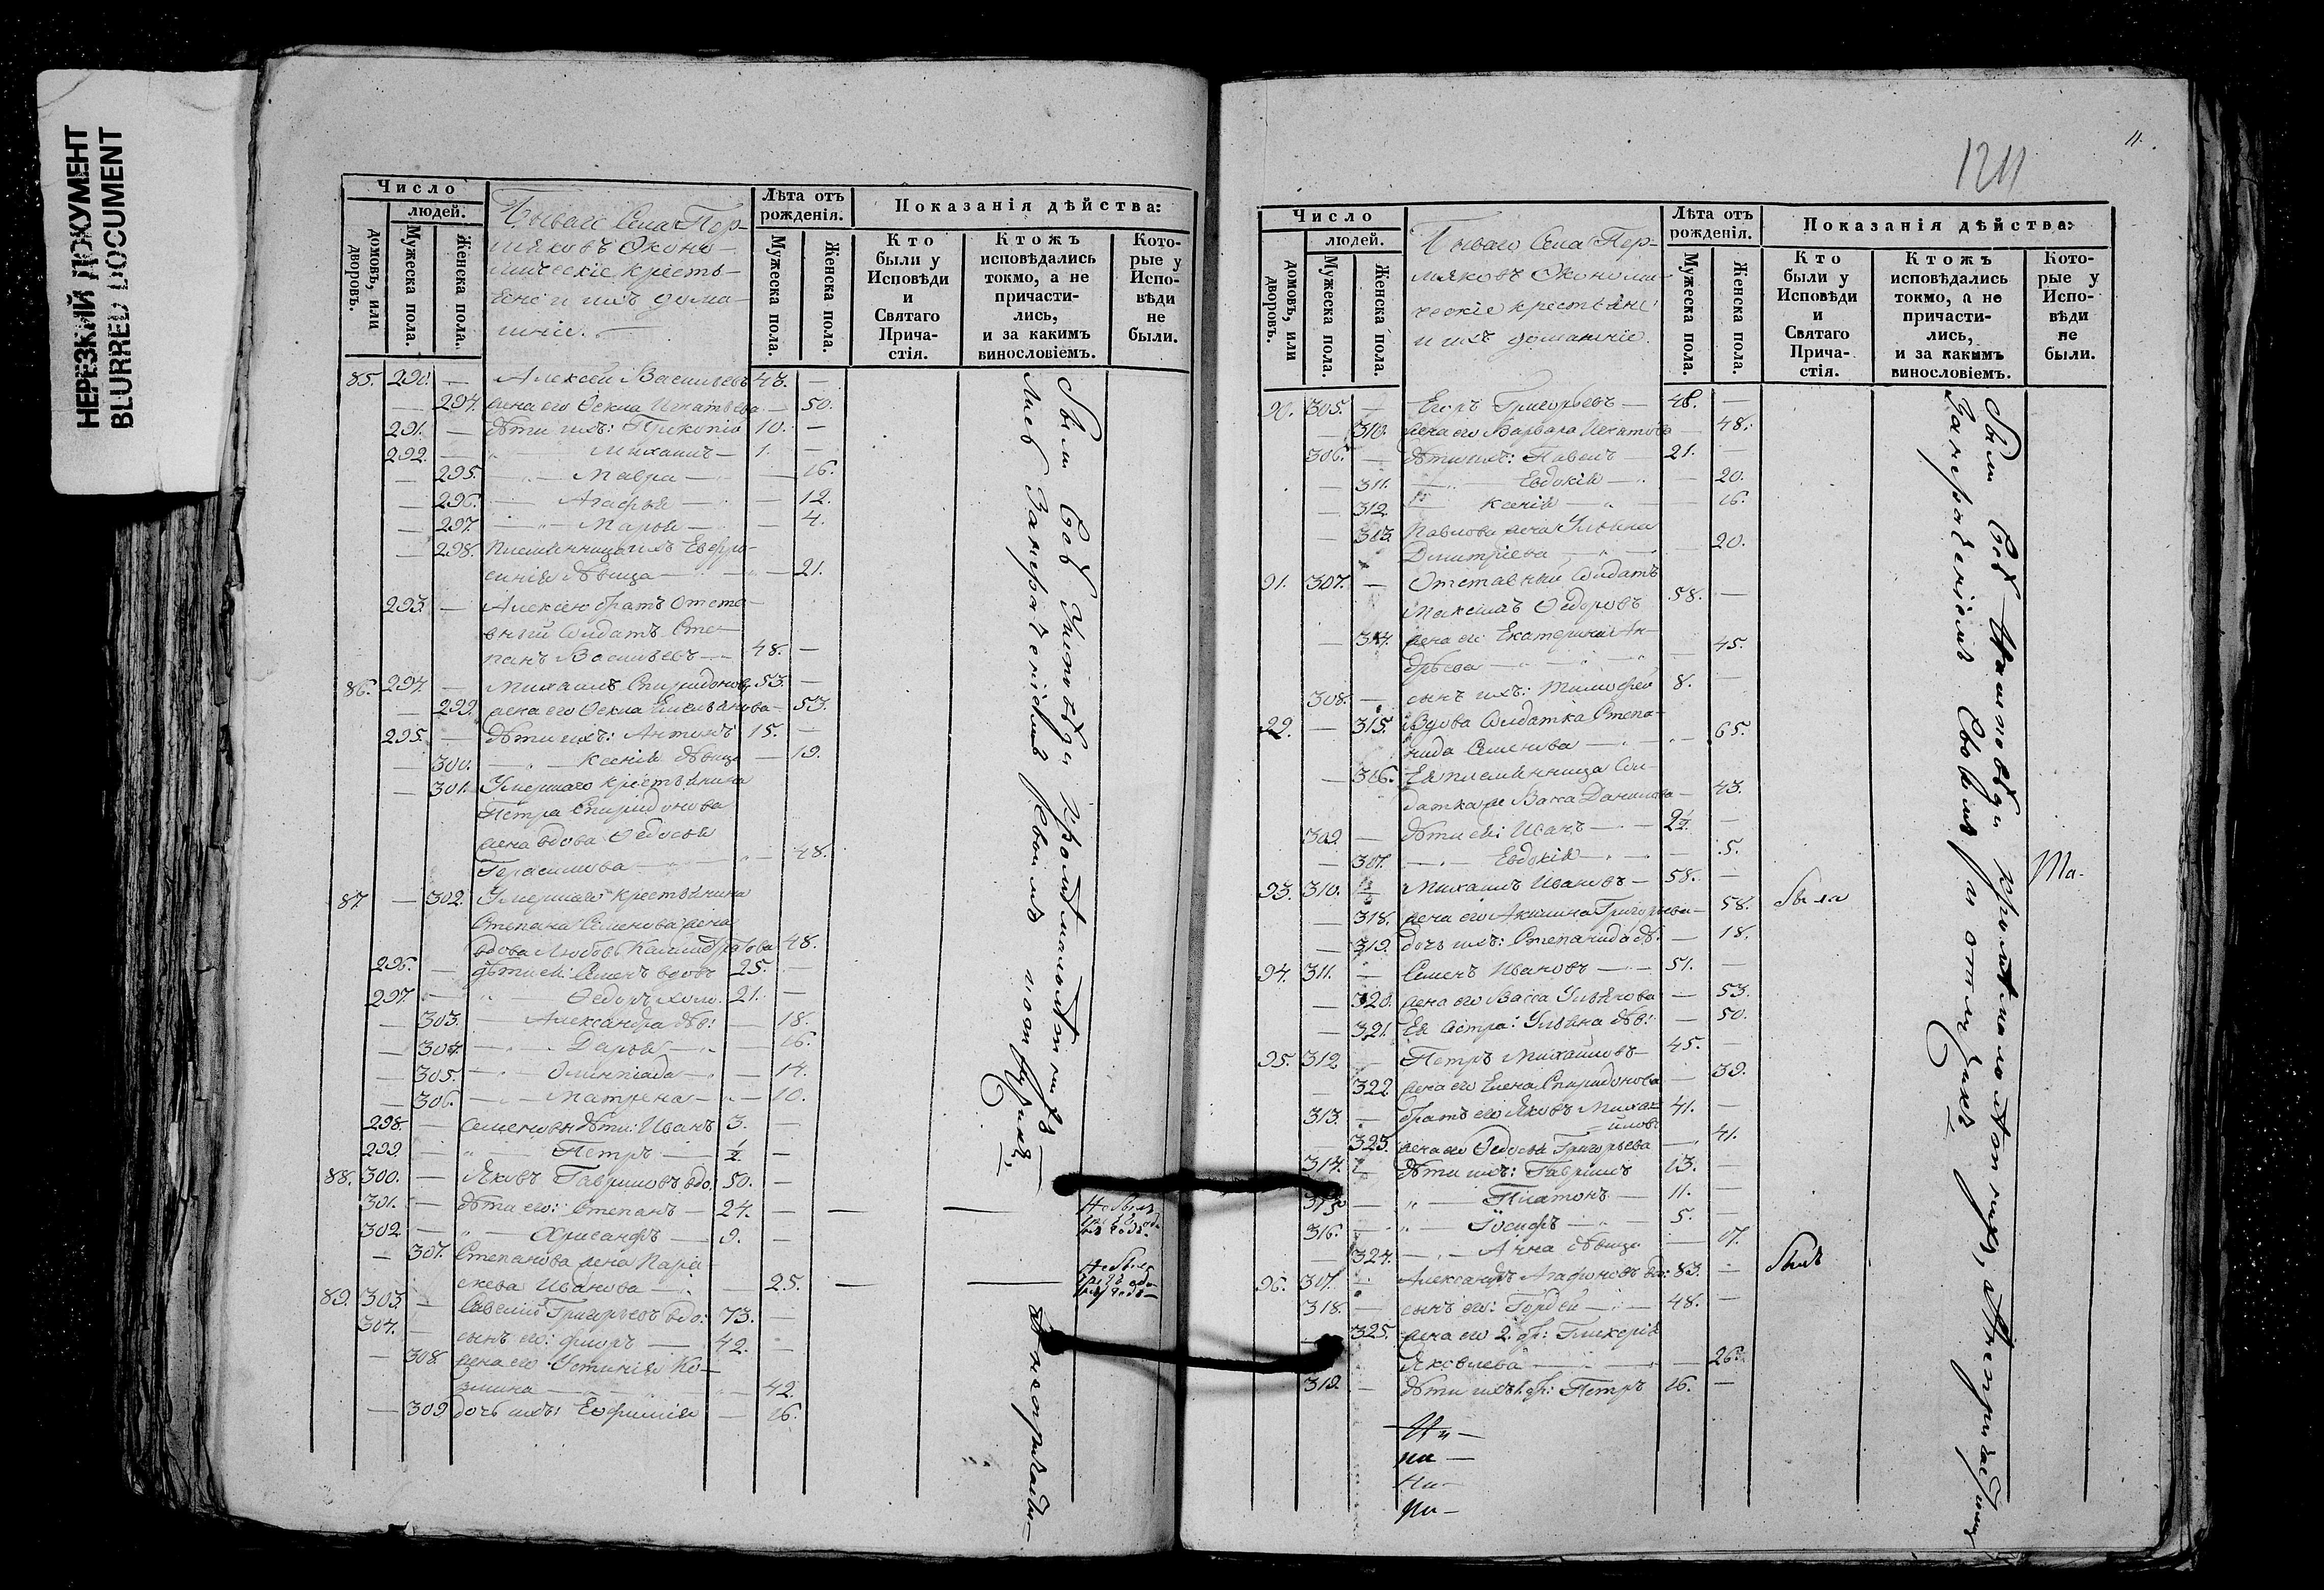 НЕРЕЗКИЙ ДОКУМЕНТ
BLURRED DOCUMENT
Число
людей.
домовъ, или дворовъ.
Мужеска пола.
Женска пола.
Села Пер-
мяковъ Эконо-
мическіе кресть-
яне и ихъ дома-
шніе.
Лѣта отъ рожденія.
Мужеска пола.
Женска пола.
Показанія дѣйства:
Кто были у Исповѣди и Святаго Прича-стія.
Ктожъ исповѣдались токмо, а не причасти-лись, и за какимъ винословіемъ.
Кото-рые у Испо-вѣди не были.
85. 290. — Алексѣй Васильевъ 43. —
— 294. жена его Ѳекла Игнатьева — 50.
291. — дѣти ихъ: Прикопій 10. —
292. — Михаилъ — 1. —
— 295. Мавра — 16.
— 296. Агафья — 12.
— 297. Марья — 4.
— 298. племянница ихъ Евфро-
синія дѣвица — 21.
293. — Алексѣю братъ отста-
вный солдатъ Сте-
панъ Васильевъ — 48. —
86. 294. — Михаилъ Спиридоновъ 53. —
— 299. жена его Ѳекла Емельянова — 53.
295. — дѣти ихъ: Антонъ 15. —
— 300. Ксенія дѣвица — 19.
— 301. Умершаго крестьянина
Петра Спиридонова
жена вдова Ѳедосья
Герасимова — 48.
87 — 302. Умершаго крестьянина
Степана Семенова жена
вдова Любовь 48.
296. — дѣти ея: Семенъ вдовъ 25. —
297. — Ѳедоръ холо. 21. —
— 303. Александра дѣв: — 18.
— 304. Дарья — 16.
— 305. Олимпіада — 14.
— 306. Матрена — 10.
298. — Семеновы дѣти: Иванъ 3. —
299. — Петръ — ½ —
88. 300. — Яковъ Гавриловъ вдо: 50. —
301. — дѣти его: Степанъ — 24. —
302 — Хрисанфъ — 9. —
— 307. Степанова жена Парас-
кева Иванова — 25.
89. 303. — Савелій Григорьевъ вдо: 73. —
304. — сынъ его: Фролъ — 42. —
— 308. жена его Устинія Ко-
змина — 42.
— 309 дочь ихъ: Евфимія — 16.
были Всѣ у Исповѣди кромѣ малолѣтнихъ
1211
11.
Число
людей.
домовъ, или дворовъ.
Мужеска пола.
Женска пола.
Села Пер-
мяковъ Экономи-
ческіе крестьяне
и ихъ домашніе.
Лѣта отъ рожденія.
Мужеска пола.
Женска пола.
Показанія дѣйства:
Кто были у Исповѣди и Святаго Прича-стія.
Ктожъ исповѣдались токмо, а не причасти-лись, и за какимъ винословіемъ.
Кото-рые у Испо-вѣди не были.
90. 305. — Егоръ Григорьевъ — 48. —
— 310. жена его Варвара — 48.
306. — дѣти ихъ: Павелъ 21. —
— 311. Евдокія — 20.
— 312 Ксенія — 16.
— 313. Павлова жена Ульяна
Дмитріева — 20.
91. 307. — Отставный солдатъ
Максимъ Ѳедоровъ 58. —
— 314. жена его Екатерина Ан-
дрѣева — 45.
308. — сынъ ихъ: Тимофей 8. —
92. — 315. Вдова солдатка Степа-
нида Семенова — 65.
— 316. Ея племянница сол-
датка же Васса Данилова — 43.
309. — дѣти ея: Иванъ — 2½. —
— 307. Евдокія — 5.
93. 310. Михаилъ Ивановъ — 58. —
— 318. жена его Акилина Григорьева — 58. была
— 319. дочь ихъ: Степанида дѣ: — 18.
94. 311. — Семенъ Ивановъ — 51. —
— 320. жена его Васса Ульянова — 53.
— 321. Ея сестра: Ульяна дѣв: — 50.
95. 312 — Петръ Михайловъ 45. —
— 322. жена его Елена Спиридонова — 39.
313. — братъ его Яковъ Миха-
йловъ 41. —
— 323. жена его Ѳедосья Григорьева — 41.
314. — дѣти ихъ: Гаврилъ 13. —
315 — Платонъ — 11. —
316. — Іосифъ — 5. —
— 324. Анна дѣвица — 17.
96. 317. — Александръ Агафоновъ вдо: 83. — былъ
318. — сынъ его: Гордѣй — 48. —
— 325. жена его 2. бр: Гликерія
Яковлева — 26.
319. — дѣти ихъ 1. бр: Петръ 16. —
были Всѣ у Исповѣди кромѣ малолѣтнихъ,